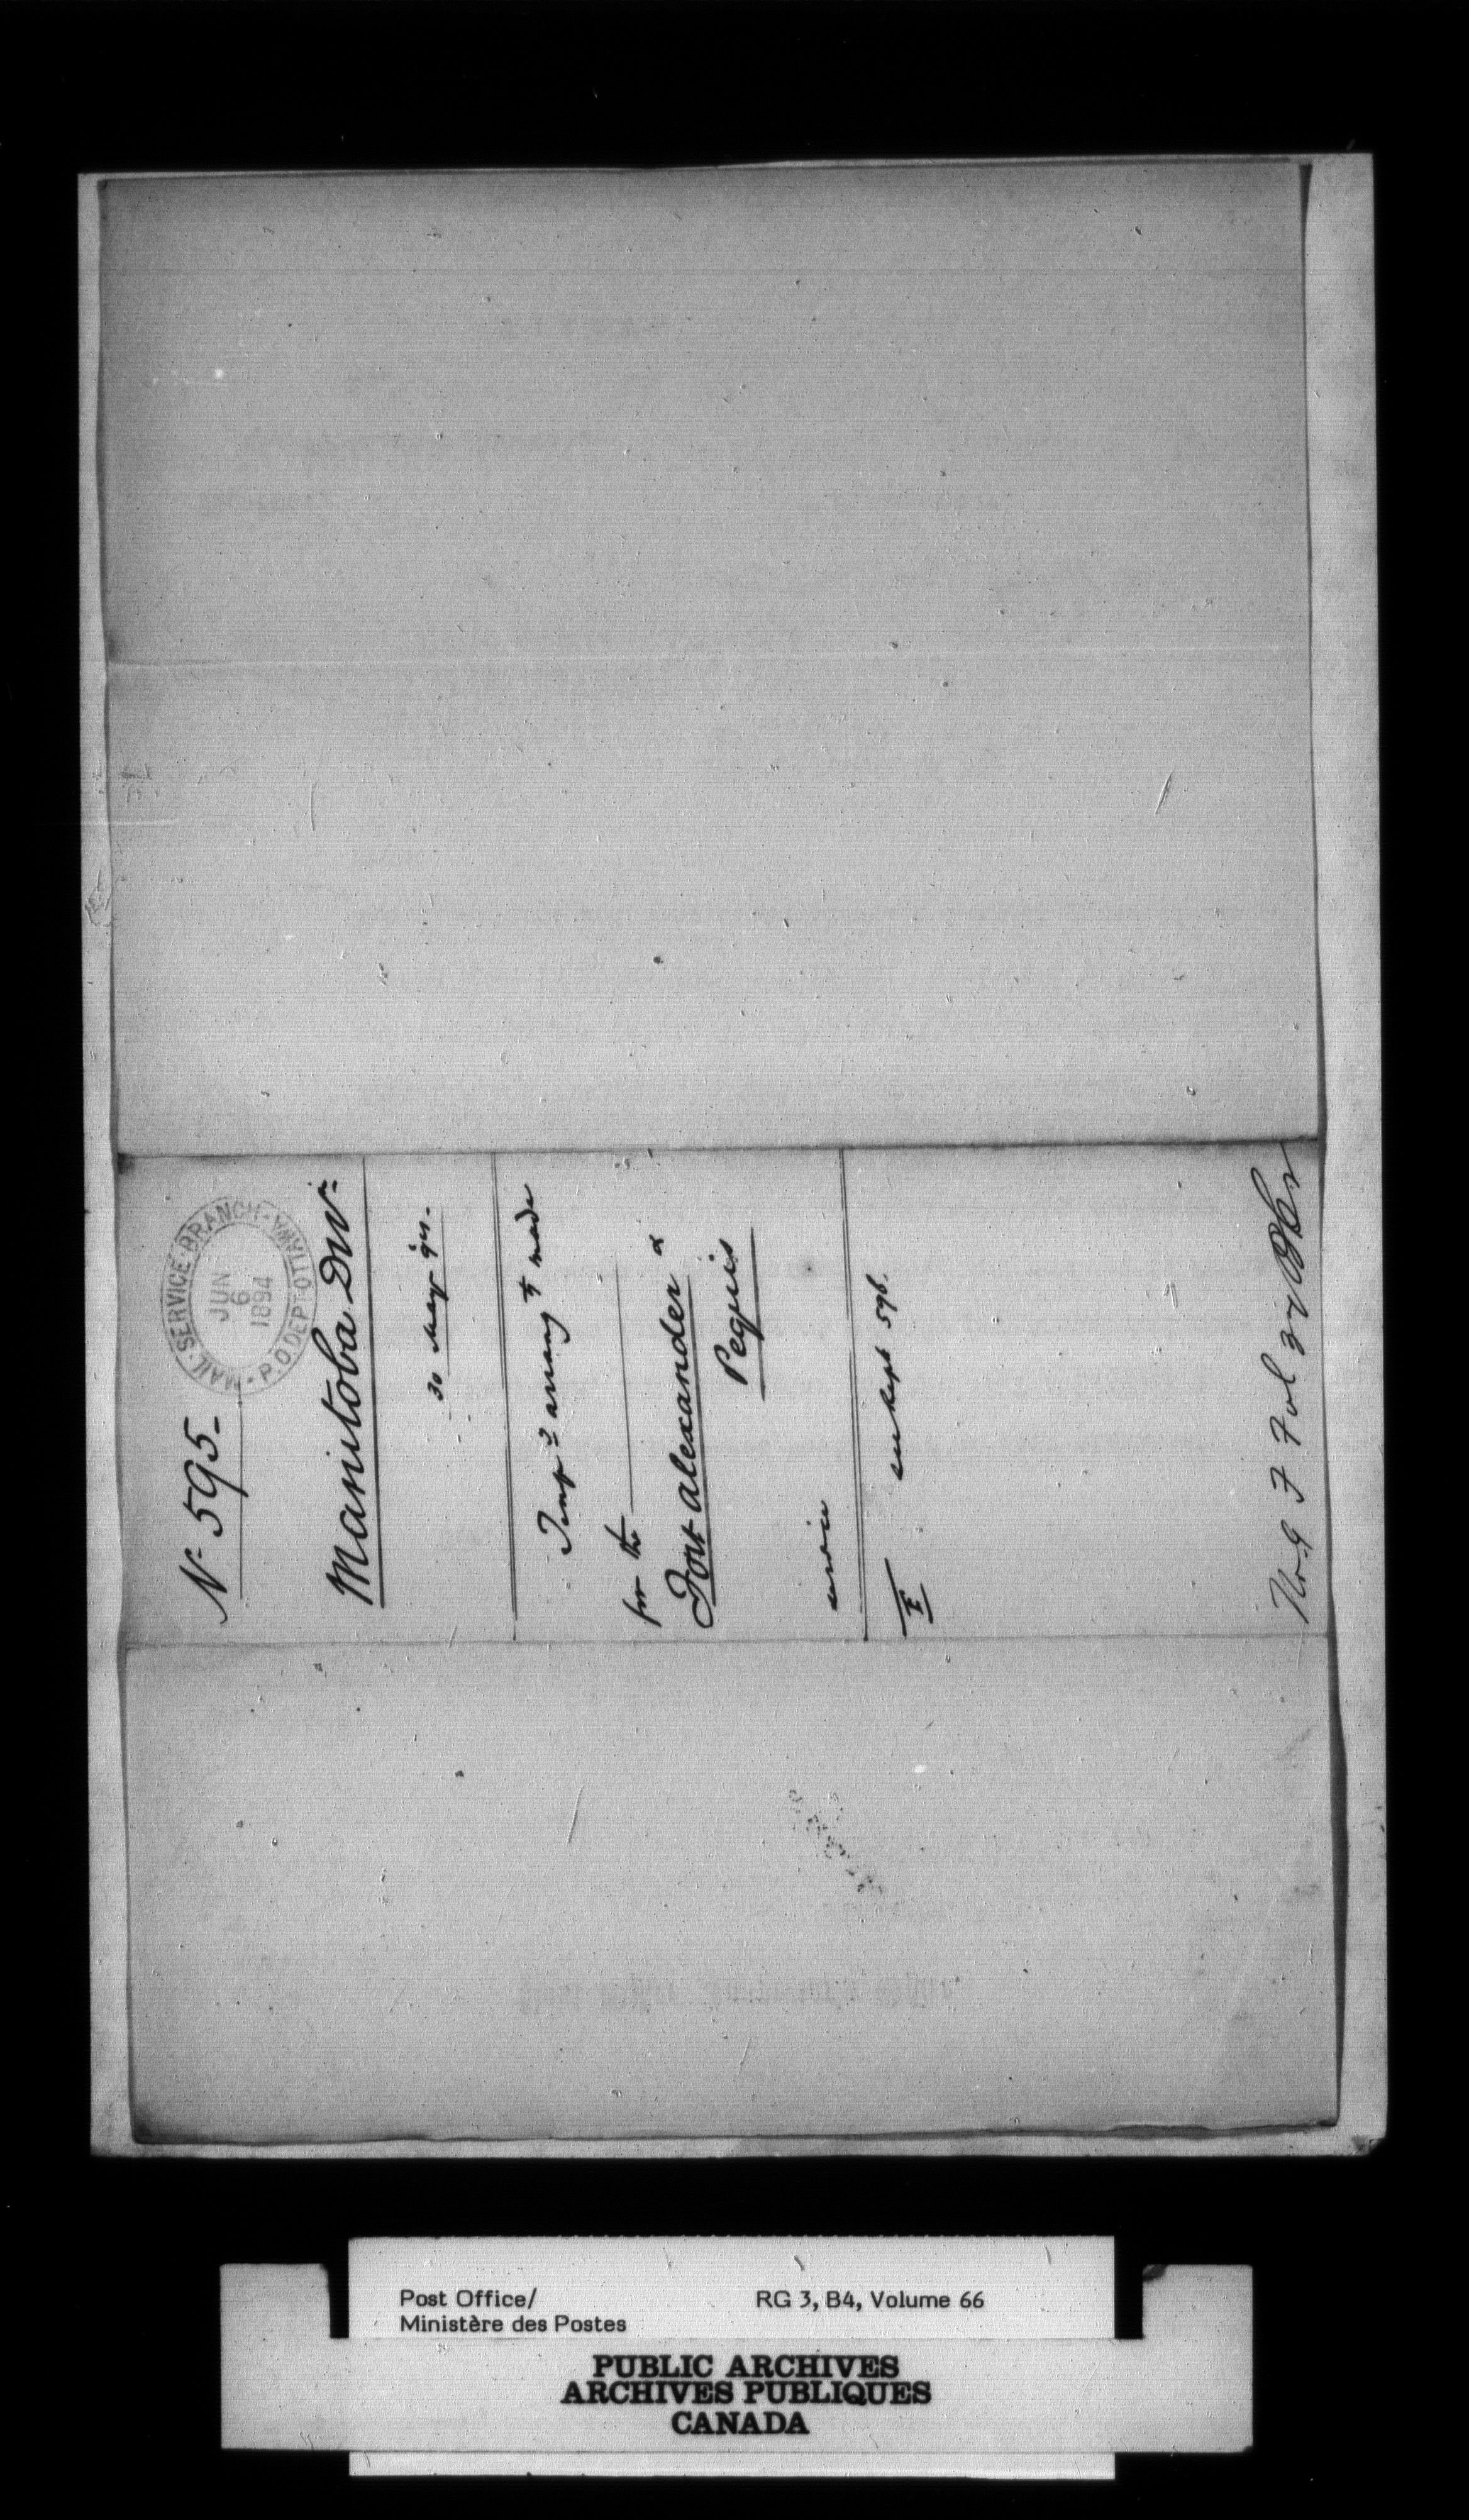 N- 595-
MAIL-SERVICE-BRANCH-
JUN
6
1894
P.O DEPT OTTAWA
Manitoba Div=
30 May
Temp y arrangt made
for the
Fort Alexander &
Peguis
service
see Rept 596.
No 9 F Fol
Post Office/
Ministère des Postes
RG 3, B4, Volume 66
PUBLIC ARCHIVES
ARCHIVES PUBLIQUES
CANADA